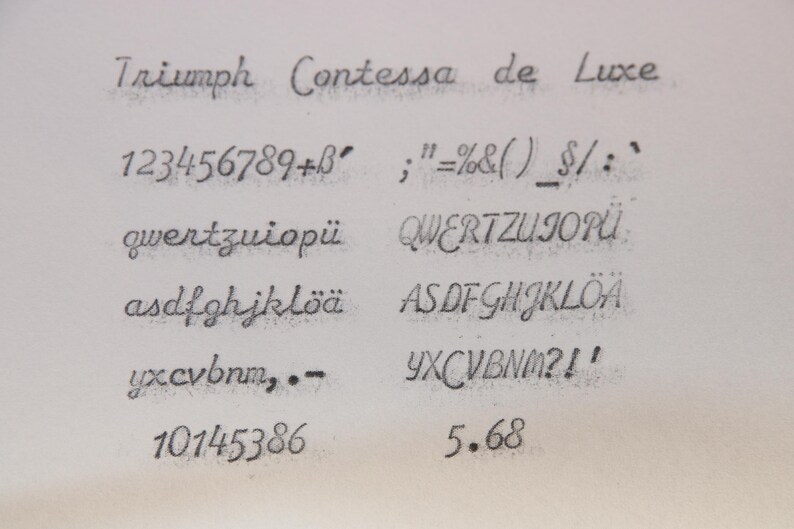 Triumph Contessa de Luxe
123456789+ß´ ;"=%&()_§/:`
qwertzuiopü QWERTZUIOPÜ
asdfghjklöä ASDFGHJKLÖÄ
yxcvbnm,.- YXCVBNM?!'
10145386 5.68